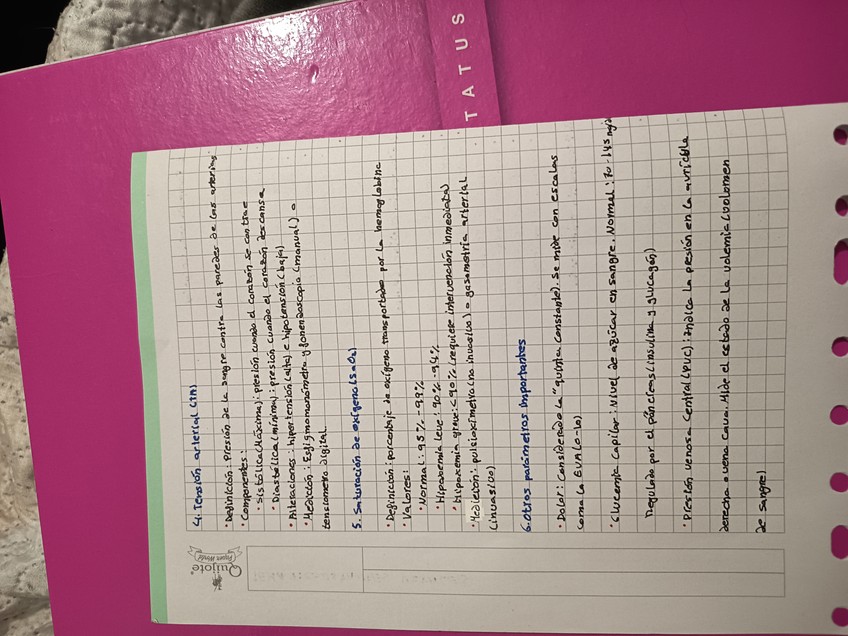 TATUS
Quijote.
Paper World
4. Tensión arterial (TA)
• Definición: Presión de la sangre contra las paredes de las arterias.
• Componentes:
• Sistólica (Máxima): presión cuando el corazón se contrae
• Diastólica (mínima): presión cuando el corazón descansa
• Alteraciones: hipertensión (alta) e hipotensión (baja)
• Medición: Esfigmomanómetro y fonendoscopio (manual) o
tensiometro digital
5. Saturación de oxígeno (SaO2)
• Definición: porcentaje de oxígeno transportado por la hemoglobina
• Valores:
• Normal: 95% - 99%
• Hipoxemia leve: 90% - 94%
• Hipoxemia grave: <90% (requiere intervención inmediata)
• Medición: pulsioxímetro (no invasivo) o gasometría arterial
(invasivo)
6. Otros parametros importantes
• Dolor: Considerado la "quinta constante). Se mide con escalas
como la EVA (0-10)
• Glucemia capilar: Nivel de azúcar en sangre. Normal: 70-145 mg/d
Regulado por el páncreas (insulina y glucagón)
• Presión venosa central (PVC): indica la presión en la aurícula
derecha o vena cava. Mide el estado de la volemia (volomen
de sangre)